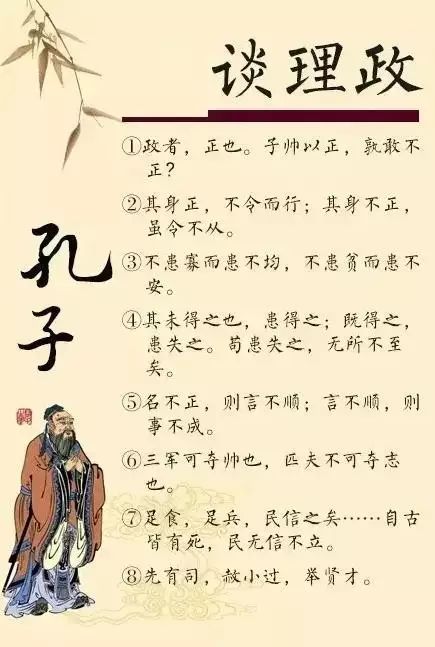 谈理政
孔子
①政者，正也。子帅以正，孰敢不
正？
②其身正，不令而行；其身不正，
虽令不从。
③不患寡而患不均，不患贫而患不
安。
④其未得之也，患得之；既得之，
患失之。苟患失之，无所不至
矣。
⑤名不正，则言不顺；言不顺，则
事不成。
⑥三军可夺帅也，匹夫不可夺志
也。
⑦足食，足兵，民信之矣……自古
皆有死，民无信不立。
⑧先有司，赦小过，举贤才。